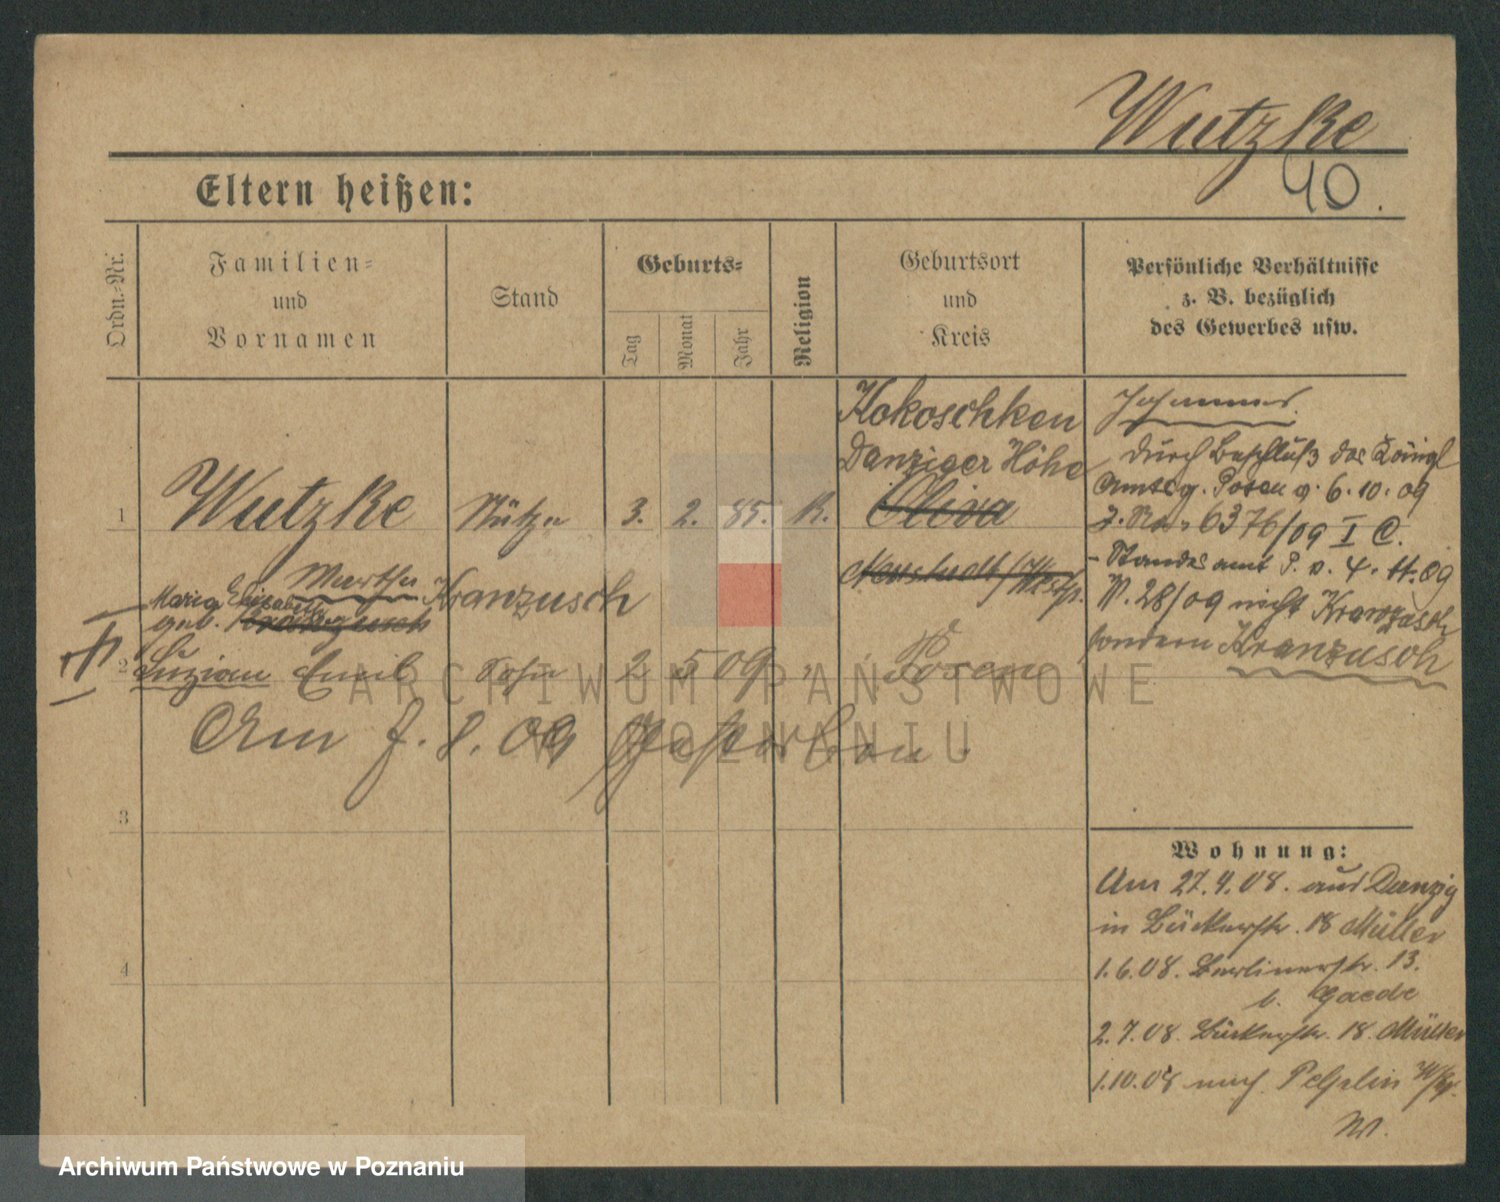 Wutzke
40.
Eltern heißen:
Ordn.-Nr.
Familien-
und
Vornamen
Stand
Geburts-
Tag
Monat
Jahr
Religion
Geburtsort
und
Kreis
Persönliche Verhältnisse
z. B. bezüglich
des Gewerbes usw.
1
Wutzke
Stütze
3. 2. 85. K.
Kokoschken
Danziger Höhe
Oliva
Neustadt/Westpr.
Martha Kranzusch
Maria Elisabeth
geb. Kranzusch
2
Luzian Emil Sohn 2 5 09 " Posen
Am 7. 8. 09 gestorben.
3
4
durch Beschluß des Königl
Amtsg. Posen v. 6. 10. 09
J. No. 6376/09 I C.
- Standesamt P. v. 4. 11. 09
P. 28/09 nicht Kranzusch
sondern Kranzusch
Wohnung:
Am 27.4.08. aus Danzig
in Bäckerstr. 18 Müller
1.6.08. Berlinerstr. 13.
b. Gaede
2.7.08. Bäckerstr. 18. Müller
1.10.08 nach Pelplin W/Pr.
ARCHIWUM PAŃSTWOWE
W POZNANIU
Archiwum Państwowe w Poznaniu